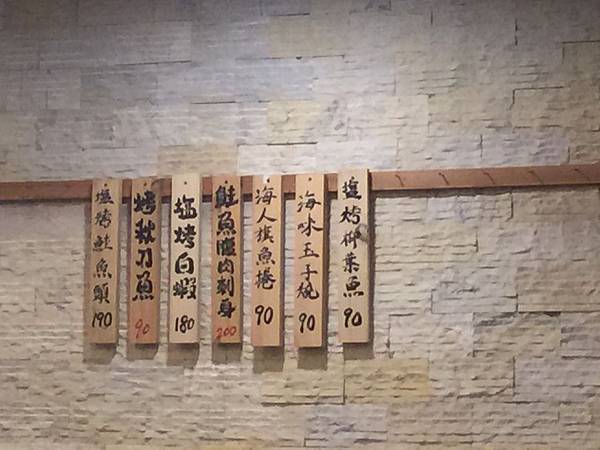 塩烤鮭魚頭 190
烤秋刀魚 90
塩烤白蝦 180
鮭魚腹肉刺身 200
海人旗魚捲 90
海味玉子燒 90
塩烤柳葉魚 90